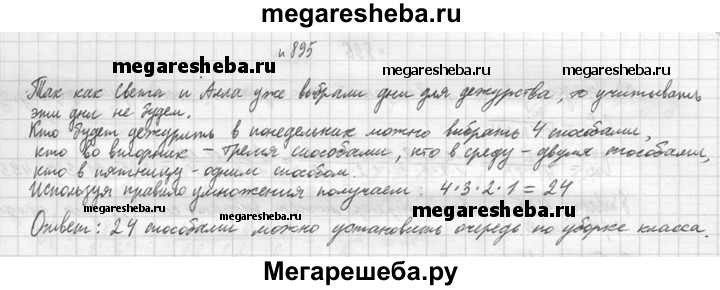 megaresheba.ru
н 895
megaresheba.ru
megaresheba.ru megaresheba.ru
Так как Света и Алла уже выбрали дни для дежурства, то учитывать
эти дни не будем.
Кто будет дежурить в понедельник можно выбрать 4 способами,
кто во вторник – тремя способами, кто в среду – двумя способами,
кто в пятницу – одним способом.
Используя правило умножения получаем: 4·3·2·1=24
megaresheba.ru megaresheba.ru
Ответ: 24 способами можно установить очередь по уборке класса.
Мегарешеба.ру